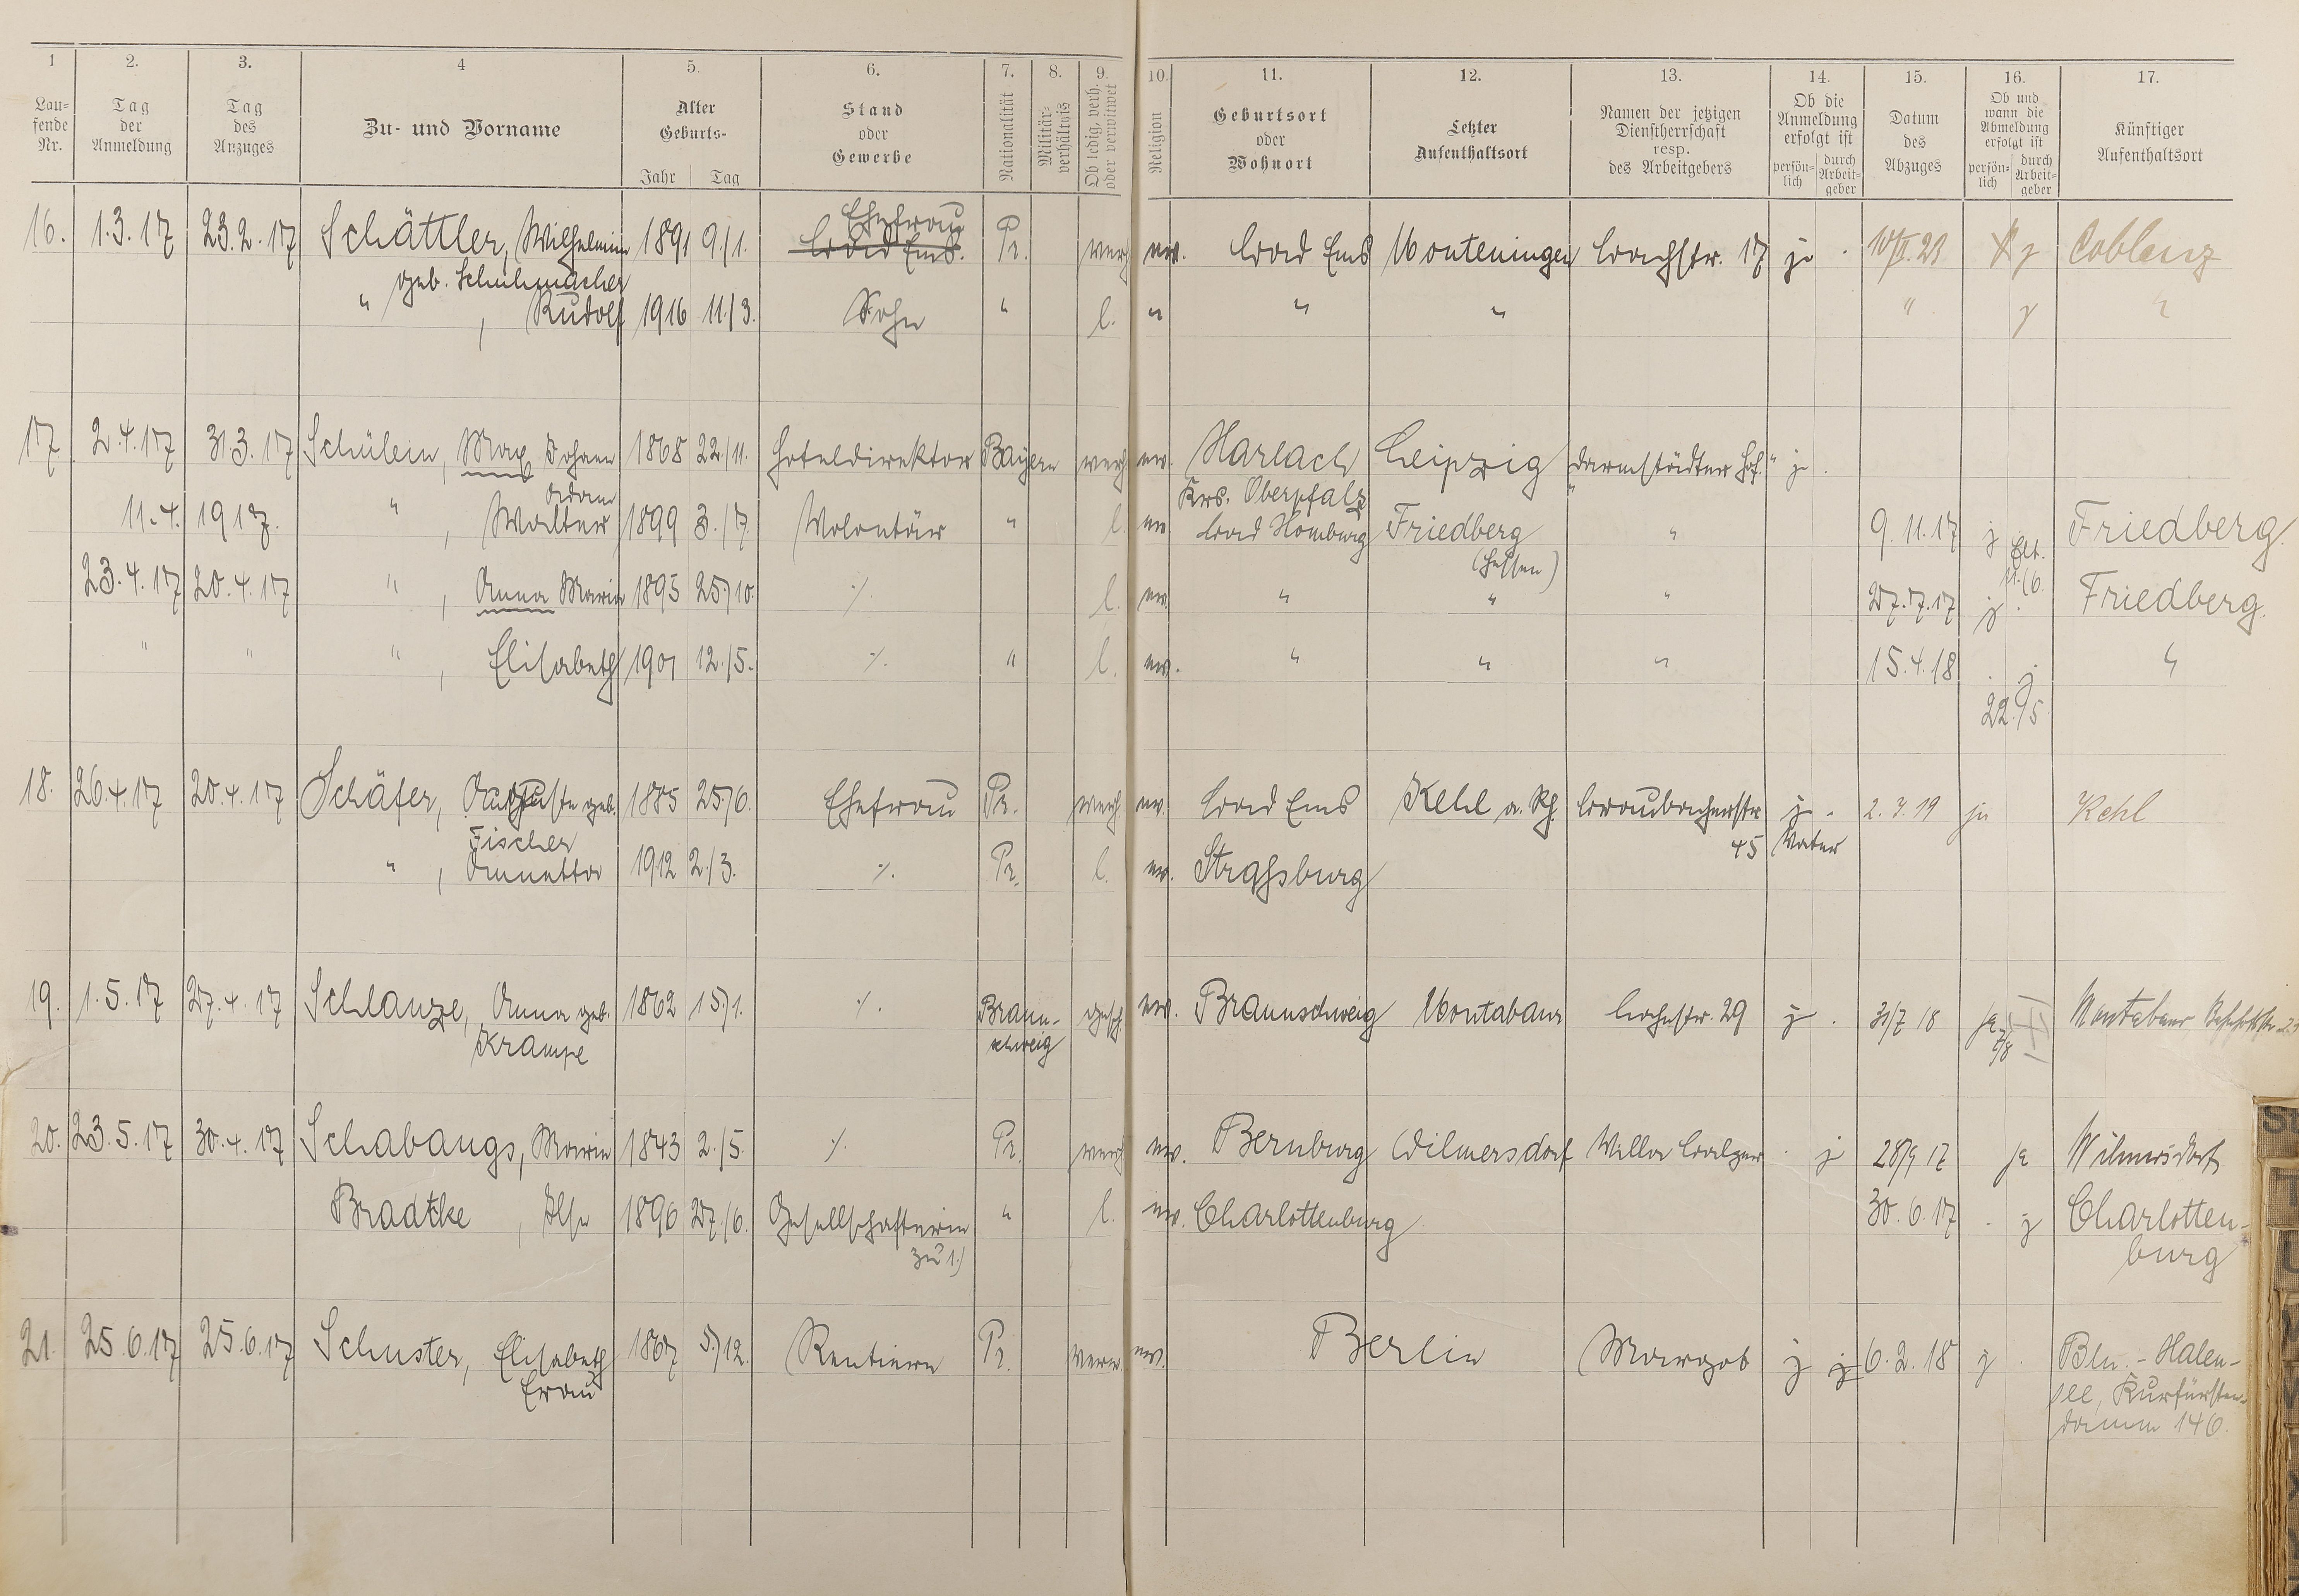 1 2. 3. 4 5. 6. 7. 8. 9. 10. 11. 12. 13. 14. 15. 16. 17.
Lau-
fende
Nr.
Tag
der
Anmeldung
Tag
des
Anzuges
Zu- und Vorname
Alter
Geburts-
Jahr Tag
Stand
oder
Gewerbe
Nationalität
Militär-
verhältnis
Ob ledig, verh.
oder verwitwet
Religion
Geburtsort
oder
Wohnort
Letzter
Aufenthaltsort
Namen der jetzigen
Dienstherrschaft
resp.
des Arbeitgebers
Ob die
Anmeldung
erfolgt ist
persön-
lich
durch
Arbeit-
geber
Datum
des
Abzuges
Ob und
wann die
Abmeldung
erfolgt ist
persön-
lich
durch
Arbeit-
geber
Künftiger
Aufenthaltsort
Ehefrau
16. 1.3.17 23.2.17 Schättler, Wilhelmine 1891 9./1. Bad Ems. Pr. verh. ev. Bad Ems Bachstr. 17 ja Coblenz
geb. Schuhmacher
" , Rudolf 1916 11./3. Sohn " l. " " " " j "
17. 2.4.17 31.3.17 Schülein, Max Johann 1868 22./11. Hoteldirektor Bayern verh. ev. Harlach Leipzig "Darmstädter Hof." j.
Adam Krs. Oberpfalz
11.4. 1917. " , Walter 1899 3./7. Volontär " l. ev. Bad Homburg Friedberg " 9.11.17 j Friedberg.
(Hessen)
23.4.17 20.4.17 " , Anna Maria 1895 25./10. ./. l. ev. " " " 27.7.17 j. Friedberg.
" " " , Elisabeth 1901 12./5. ./. " l. ev. " " " 15.4.18 . j "
22./5.
18. 26.4.17 20.4.17 Schäfer, Auguste geb. 1885 25./6. Ehefrau Pr. verh. ev. Bad Ems Kehl a. Rh. Braubacherstr. j. 2.3.19 ja Kehl
Fischer 45 Vater
" , Annetta 1912 2./3. ./. Pr. l. ev. Straßburg
19. 1.5.17 27.4.17 Schlanze, Anna geb. 1862 15./1. ./. Braun- gesch. ev. Braunschweig Montabaur Bachstr. 29 j. 31/7 18 ja Montabaur
Krampe schweig 7/8
20. 23.5.17 30.4.17 Schabangs, Maria 1843 2./5. ./. Pr. verh. ev. Bernburg Wilmersdorf Villa Balzer . j 28/9 17 ja Wilmersdorf
Bradtke , Ilse 1896 27./6. Gesellschafterin " l. ev. Charlottenburg 30.6.17 . j Charlotten-
zu 1.) burg
21. 25.6.17 25.6.17 Schuster, Elisabeth 1867 5./12. Rentiere Pr. verw. ev. Berlin j j 6.2.18 j . Bln. - Halen-
Frau see, Kurfürsten-
damm 146.